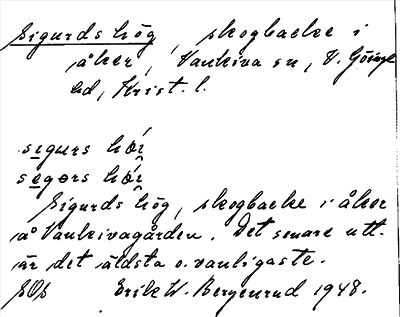 Sigurds hög, skogbacke i
åker, Vankiva sn, V. Göinge
hd, Krist. l.
sigurs høi
segørs høi
Sigurds hög, skogbacke i åker
på Vankivagården. Det senare utt.
är det äldsta o. vanligaste.
SOS Erik W. Bergenrud 1948.